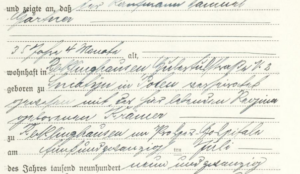 und zeigte an, daß der Kaufmann Samuel
Gärtner
25 Jahre 4 Monate alt,
wohnhaft in Recklinghausen
geboren zu in Polen verheiratet
gewesen mit der geborenen Regina
geborenen Kramer
zu Recklinghausen im Prosper-Hospitale
am fünfundzwanzig ten Juli
des Jahres tausend neunhundert neunundzwanzig